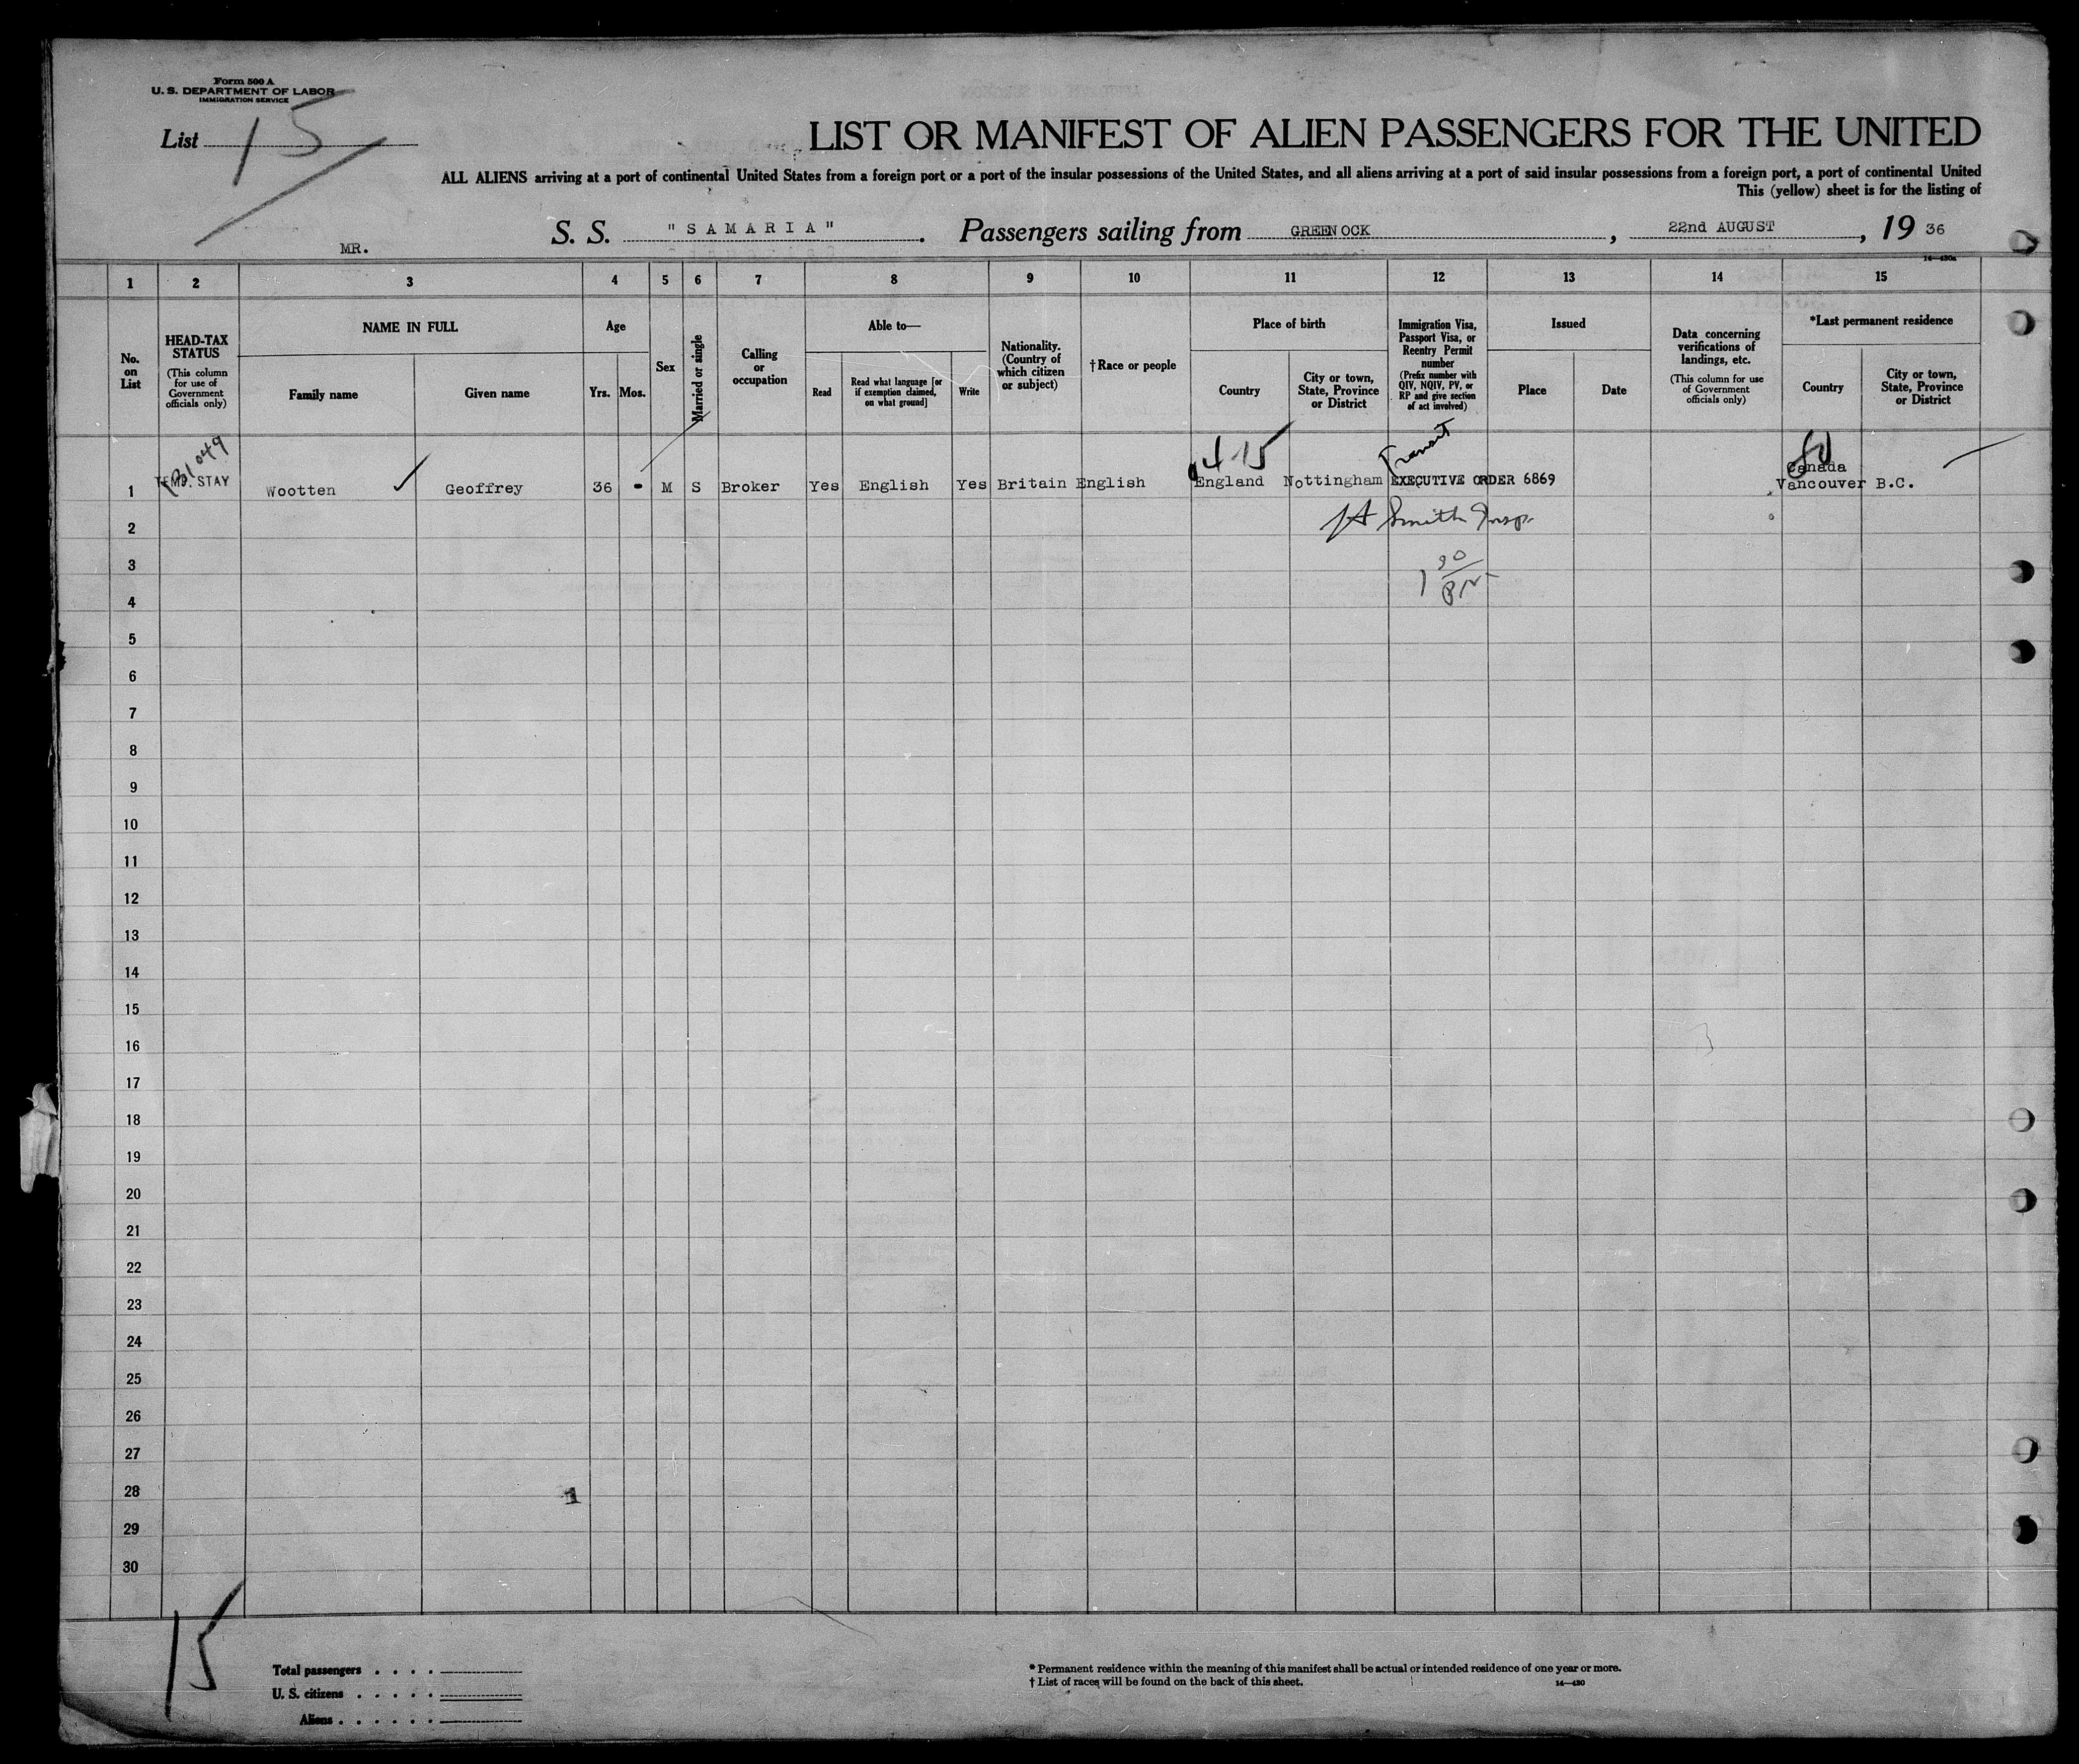 Form 500 A
U. S. DEPARTMENT OF LABOR
IMMIGRATION SERVICE
List 15
LIST OR MANIFEST OF ALIEN PASSENGERS FOR THE UNITED
ALL ALIENS arriving at a port of continental United States from a foreign port or a port of the insular possessions of the United States, and all aliens arriving at a port of said insular possessions from a foreign port, a port of continental United
This (yellow) sheet is for the listing of
S. S. "SAMARIA". Passengers sailing from GREENOCK, 22nd AUGUST, 19 36
MR.
14—430a
1 2 3 4 5 6 7 8 9 10 11 12 13 14 15
No. on List
HEAD-TAX STATUS
(This column for use of Government officials only)
NAME IN FULL
Family name
Given name
Age
Yrs.
Mos.
Sex
Married or single
Calling or occupation
Able to—
Read
Read what language [or if exemption claimed, on what ground]
Write
Nationality. (Country of which citizen or subject)
† Race or people
Place of birth
Country
City or town, State, Province or District
Immigration Visa, Passport Visa, or Reentry Permit number
(Prefix number with QIV, NQIV, PV, or RP and give section of act involved)
Issued
Place
Date
Data concerning verifications of landings, etc.
(This column for use of Government officials only)
*Last permanent residence
Country
City or town, State, Province or District
4-15 Transit
Canada
1 TEMP. STAY Wootten Geoffrey 36 - M S Broker Yes English Yes Britain English England Nottingham EXECUTIVE ORDER 6869 Vancouver B.C.
Smith Insp.
2
3
4
5
6
7
8
9
10
11
12
13
14
15
16
17
18
19
20
21
22
23
24
25
26
27
28
1
29
30
15
Total passengers . . . .
U. S. citizens . . . . .
Aliens . . . . . .
* Permanent residence within the meaning of this manifest shall be actual or intended residence of one year or more.
† List of races will be found on the back of this sheet.
14—430